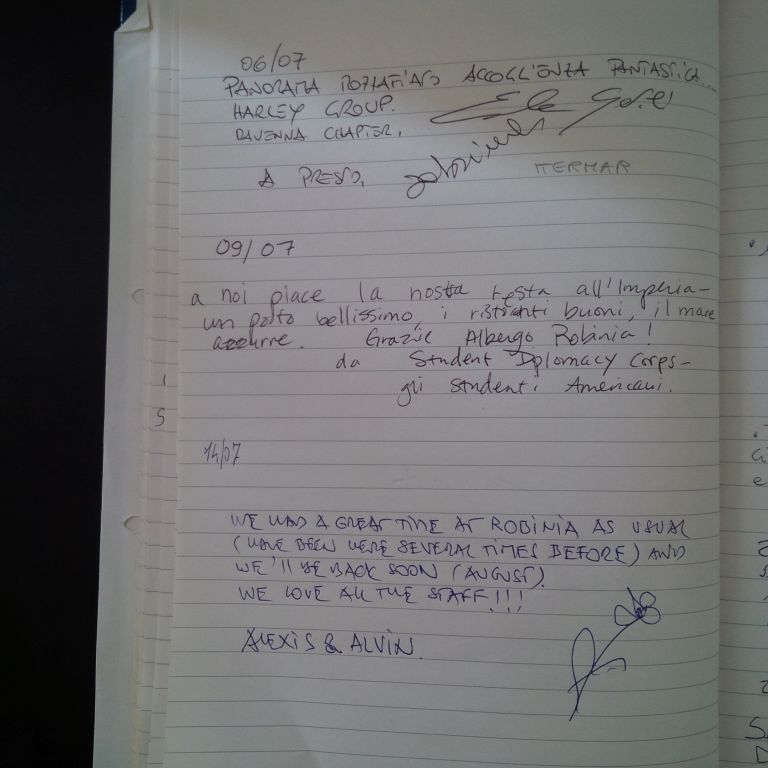 06/07
PANORAMA MOZZAFIATO ACCOGLIENZA FANTASTICA...
HARLEY GROUP.
RAVENNA CHAPTER.
A PRESTO,
09/07
a noi piace la nostra festa all'Imperia-
un posto bellissimo, i ristoranti buoni, il mare
azzurre. Grazie Albergo Robinia!
da Student Diplomacy Corps-
gli studenti Americani.
14/07
WE HAD A GREAT TIME AT ROBINIA AS USUAL
(HAVE BEEN HERE SEVERAL TIMES BEFORE) AND
WE'LL BE BACK SOON (AUGUST).
WE LOVE ALL THE STAFF!!!
ALEXIS & ALVIN.